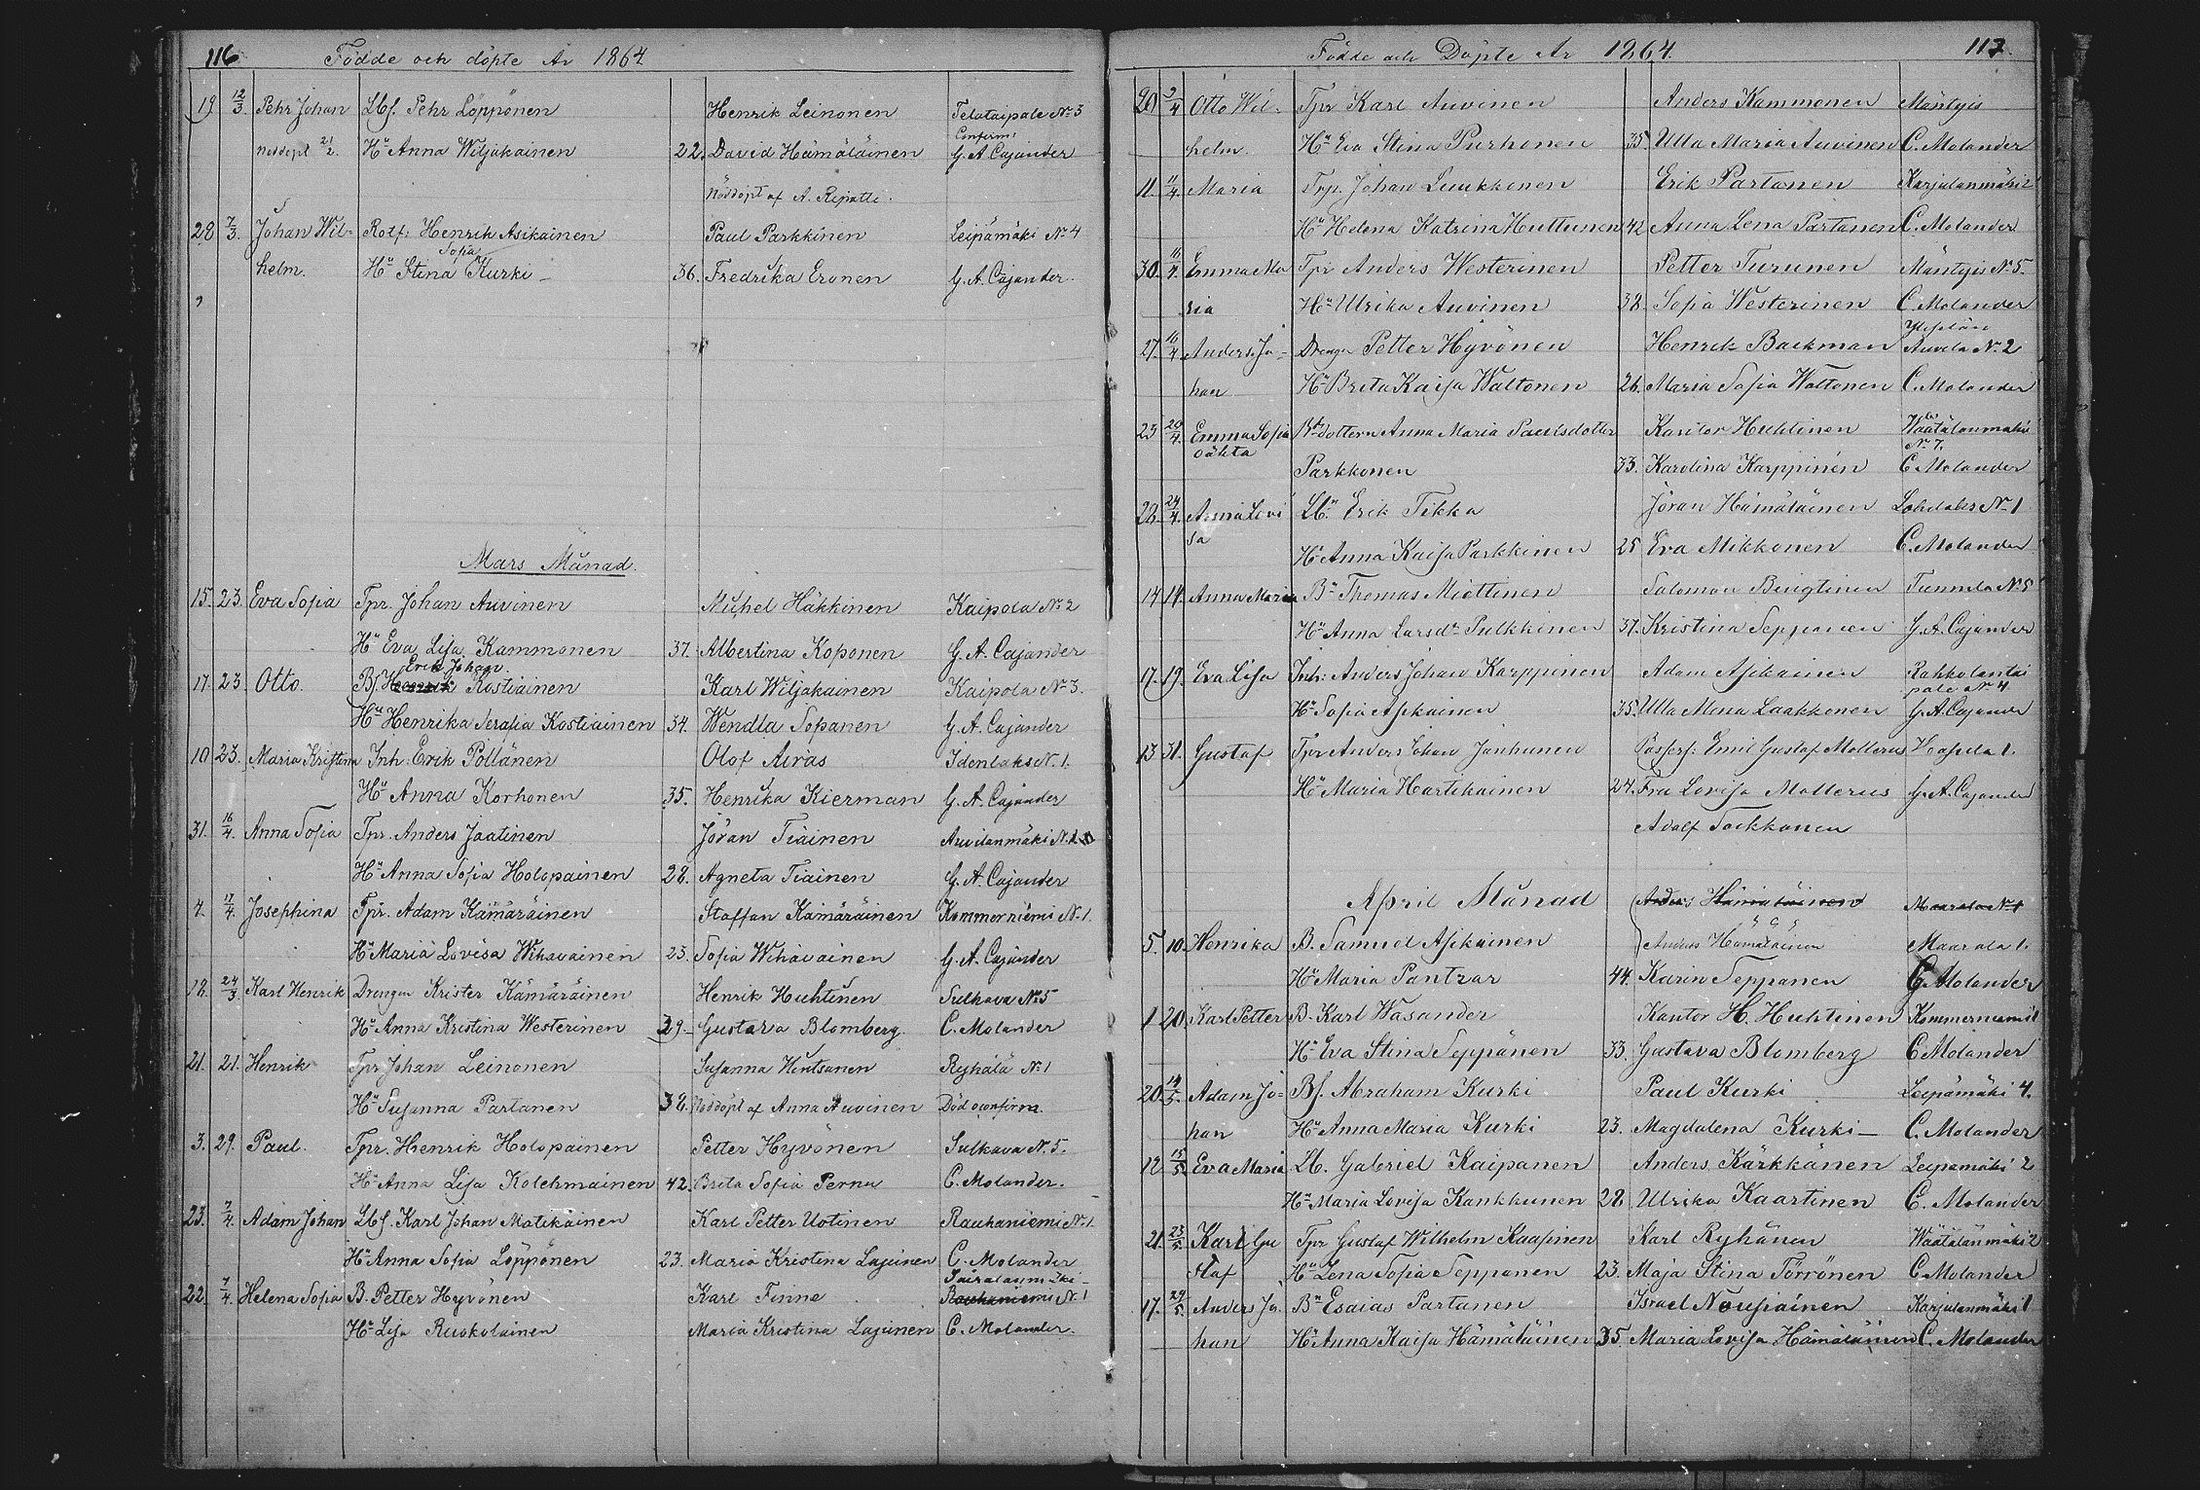 116 Födde och döpte År 1864
19 12/3. Pehr Johan Lbf. Pehr Löppönen Henrik Leinonen Telataipale No 3
Confirm:
nöddöpt 21/2. Hu Anna Wiljakainen 22. David Hämäläinen G. A. Cajander
Nöddöpt af A. Ripatti.
28 7/3. Johan Wil- Rotf: Henrik Asikainen Paul Parkkinen Leipämäki No 4
Sofia
helm. Hu Stina Kurki - 36. Fredrika Eronen G. A. Cajander.
Mars Månad.
15. 23. Eva Sofia Tpr. Johan Auvinen Michel Häkkinen Kaipola No 2
Hu Eva Lisa Kammonen 37. Albertina Koponen G. A. Cajander
Erik Johan.
17 23. Otto. Bf. Henrik Kostiainen Karl Wiljakainen Kaipola No 3.
Hu Henrika Serafia Kostiainen 34. Wendla Sopanen G. A. Cajander
10 23. Maria Kristina Inh: Erik Pöllänen Olof Airas Idenlaks N. 1.
Hu Anna Korhonen 35. Henrika Kierman G. A. Cajander
31. 16/4. Anna Sofia Tpr. Anders Jaatinen Jöran Tiainen Auvilanmäki N. 1
Hu Anna Sofia Holopainen 28. Agneta Tiainen G. A. Cajander
4. 17/4. Josephina Tpr. Adam Kämäräinen Staffan Kämäräinen Kommerniemi N. 1.
Hu Maria Lovisa Wihavainen 23. Sofia Wihavainen G. A. Cajander
18. 24/3. Karl Henrik Drengen Krister Kämäräinen Henrik Huhtinen Sulkava No 5
Hu Anna Kristina Westerinen 29- Gustava Blomberg. C. Molander
21. 21. Henrik Tpr Johan Leinonen Susanna Hintsanen Ryhälä No 1
Hu Susanna Partanen 38. Nöddöpt af Anna Auvinen Död oconfirm.
3. 29. Paul. Tpr. Henrik Holopainen Petter Hyvönen Sulkava N. 5.
Hu Anna Lisa Kolehmainen 42. Brita Sofia Pernu C. Molander.
23. 7/4. Adam Johan Lbf. Karl Johan Matikainen Karl Petter Uotinen Rauhaniemi No 1.
Hu Anna Sofia Löppönen 23. Maria Kristina Lajunen C. Molander
22. 7/4. Helena Sofia B. Petter Hyvönen Karl Finne Rauhaniemi No 1
Hu Lisa Ruskolainen Maria Kristina Lajunen C. Molander.
Födde och Döpte År 1864. 117.
20 3/4 Otto Wil- Tpr Karl Auvinen Anders Kammonen Mäntyis
helm. Hu Eva Stina Purhonen 35. Ulla Maria Auvinen C. Molander
11. 11/4. Maria Trp. Johan Luukkonen Erik Partanen Karjulanmäki 2
Hu Helena Katrina Huttunen 42 Anna Lena Partanen C. Molander
30. 11/4. Emma Ma Tpr Anders Westerinen Petter Turunen Mäntyis No 5.
ria Hu Ulrika Auvinen 38. Sofia Westerinen C. Molander
27. 16/4 Anders Jo- Drengen Petter Hyvönen Henrik Backman Auvila N. 2
han Hu Brita Kaisa Waltonen 26. Maria Sofia Waltonen C. Molander
23 20/4. Emma Sofia Bdottern Anna Maria Paulsdotter Kantor Huhtinen Waatalanmäki
oäkta No 7.
Parkkonen 33. Karolina Karppinen C. Molander
22. 24/4. Anna Lovi Lbn Erik Tikka Jöran Hämäläinen Lohilaks No 1
sa
Hu Anna Kaisa Parkkinen 25 Eva Mikkonen C. Molander
14 14. Anna Maria Bn Thomas Miettinen Salomon Bengtinen Tunnila No 5
Hu Anna Larsdr Pulkkinen 37. Kristina Seppanen G. A. Cajander
17. 19. Eva Lisa Inh: Anders Johan Karppinen Adam Asikainen Rahkolantai
pale No 4
Hu Sofia Asikainen 35. Ulla Mena Laakkonen G. A. Cajander
13 31. Gustaf Tpr Anders Johan Janhunen Possess. Emil Gustaf Mollerus Hasula 1.
Hu Maria Hartikainen 27. Fru Lovisa Mollerus G. A. Cajander
Adolf Toikkanen
April Månad Anders Hämäläinen Maarala No 1
5. 10. Henrika B. Samuel Asikainen Anders Hämäläinen Maarala 1.
Hu Maria Pantzar 44. Karin Seppanen C. Molander
1 20. Karl Petter B. Karl Wasander Kantor H. Huhtinen Kommerniemi 1
Hu Eva Stina Seppänen 33. Gustava Blomberg C Molander
20. 14/5. Adam Jo- Bf. Abraham Kurki Paul Kurki Leipämäki 4.
han Hu Anna Maria Kurki 23. Magdalena Kurki - C. Molander
12 15/5. Eva Maria Lb. Gabriel Kaipanen Anders Kärkkänen Leipämäki 2
Hu Maria Lovisa Kankkunen 28. Ulrika Kaartinen C. Molander
21. 23/5. Karl Gu Tpr Gustaf Wilhelm Kaasinen Karl Ryhänen Wäätälänmäki 2
staf Hu Lena Sofia Seppanen 23. Maja Stina Törrönen C Molander
17. 29/5. Anders Jo. Bn Esaias Partanen Israel Nousiainen Karjulanmäki 1
han Hu Anna Kaisa Hämäläinen 35. Maria Lovisa Hämäläinen C. Molander